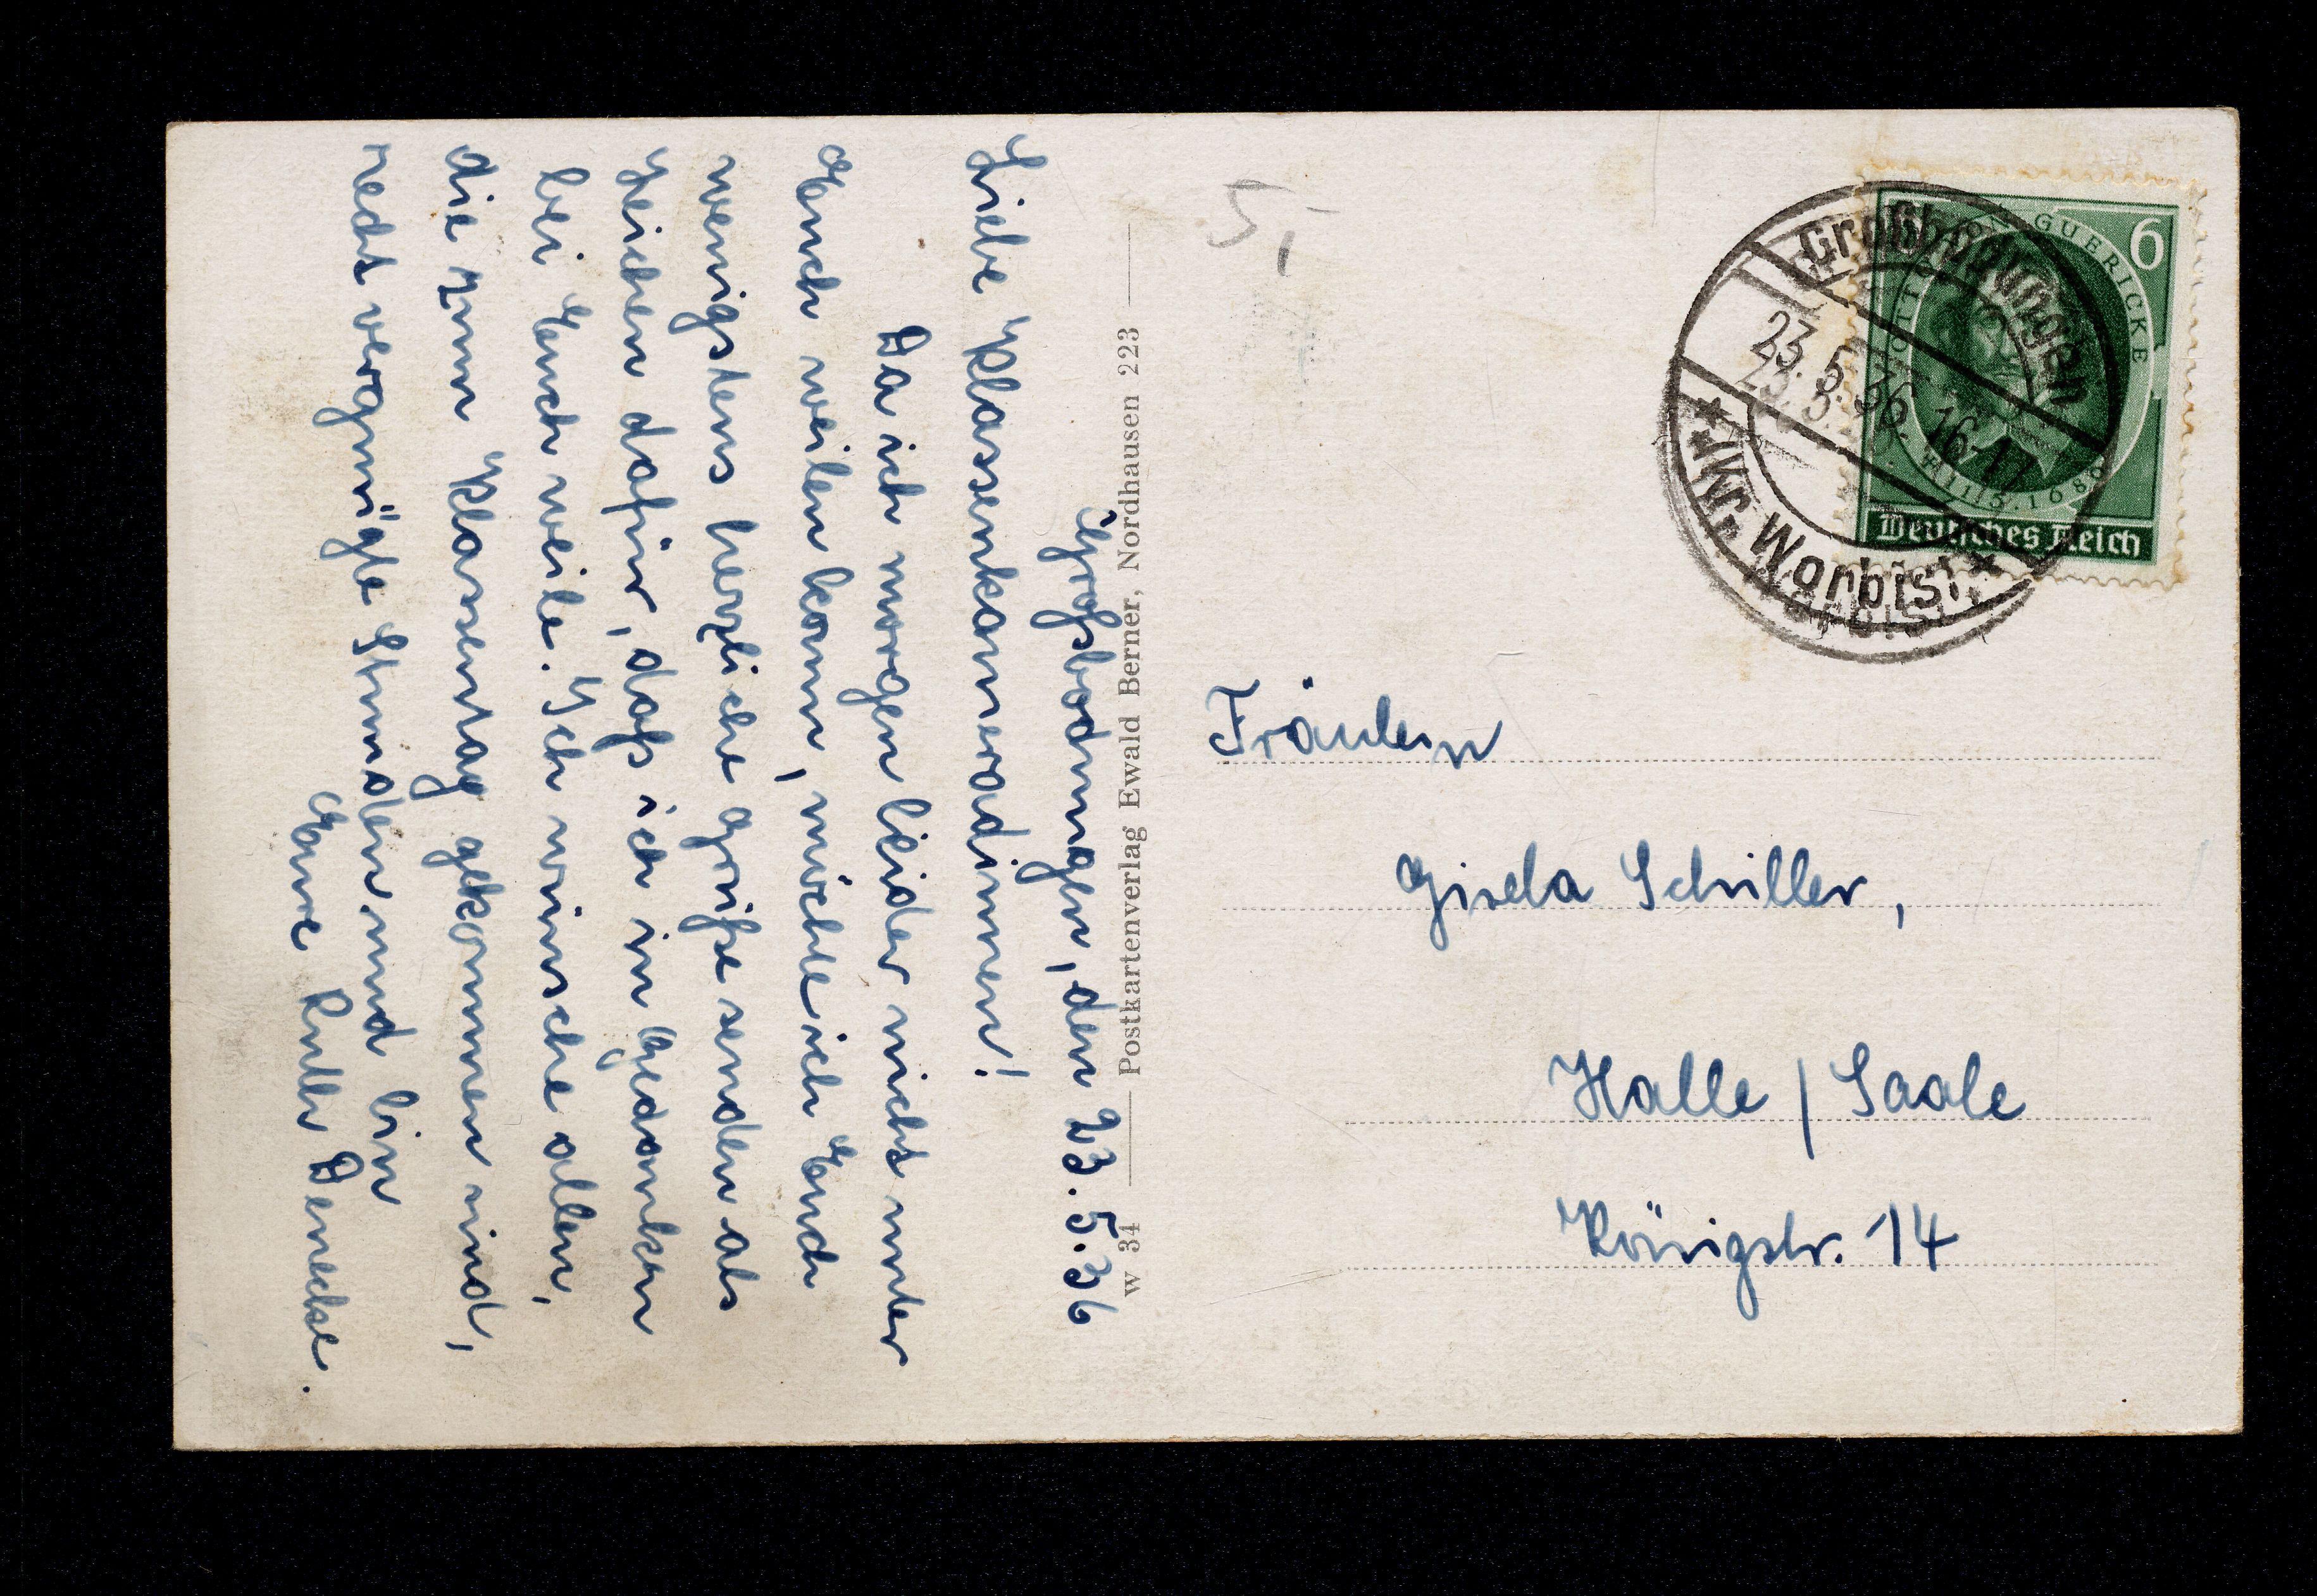 Großbodungen, den 23.5.36
Liebe Klassenkameradinnen!
Da ich morgen leider nicht unter
Euch weilen kann, möchte ich Euch
wenigstens herzliche Grüße senden als
Zeichen dafür, daß ich in Gedanken
bei Euch weile. Ich wünsche allen,
die zum Klassentag gekommen sind,
recht vergnügte Stunden und bin
Eure Ruth Denecke.
w 34 Postkartenverlag Ewald Berner, Nordhausen 223
5,-
6
OTTO VON GUERICKE
† 11.5.1686
Deutsches Reich
Großbodungen
23.5.36. 16-17
Kr. Worbis
Fräulein
Gisela Schiller,
Halle / Saale
Königstr. 14